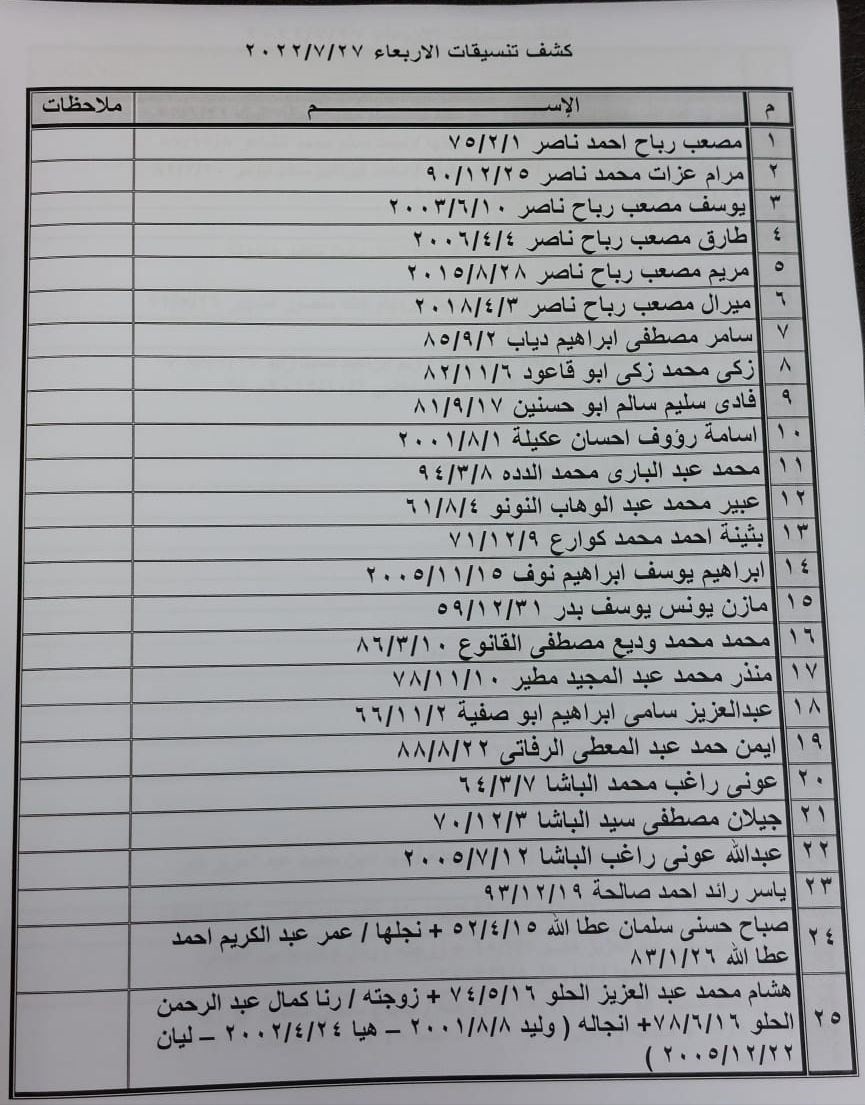 كشف تنسيقات الاربعاء ٢٠٢٢/٧/٢٧
م الإســـــــــــم ملاحظات
١ مصعب رباح احمد ناصر ٧٥/٢/١
٢ مرام عزات محمد ناصر ٩٠/١٢/٢٥
٣ يوسف مصعب رباح ناصر ٢٠٠٣/٦/١٠
٤ طارق مصعب رباح ناصر ٢٠٠٦/٤/٤
٥ مريم مصعب رباح ناصر ٢٠١٥/٨/٢٨
٦ ميرال مصعب رباح ناصر ٢٠١٨/٤/٣
٧ سامر مصطفى ابراهيم دياب ٨٥/٩/٢
٨ زكى محمد زكى ابو قاعود ٨٢/١١/٦
٩ فادى سليم سالم ابو حسنين ٨١/٩/١٧
١٠ اسامة رؤوف احسان عكيلة ٢٠٠١/٨/١
١١ محمد عبد البارى محمد الدده ٩٤/٣/٨
١٢ عبير محمد عبد الوهاب النونو ٦١/٨/٤
١٣ بثينة احمد محمد كوارع ٧١/١٢/٩
١٤ ابراهيم يوسف ابراهيم نوف ٢٠٠٥/١١/١٥
١٥ مازن يونس يوسف بدر ٥٩/١٢/٣١
١٦ محمد محمد وديع مصطفى القانوع ٨٦/٣/١٠
١٧ منذر محمد عبد المجيد مطير ٧٨/١١/١٠
١٨ عبدالعزيز سامى ابراهيم ابو صفية ٦٦/١١/٢
١٩ ايمن حمد عبد المعطى الرفاتى ٨٨/٨/٢٢
٢٠ عونى راغب محمد الباشا ٦٤/٣/٧
٢١ جيلان مصطفى سيد الباشا ٧٠/١٢/٣
٢٢ عبدالله عونى راغب الباشا ٢٠٠٥/٧/١٢
٢٣ ياسر رائد احمد صالحة ٩٣/١٢/١٩
٢٤ صباح حسنى سلمان عطا الله ٥٢/٤/١٥ + نجلها / عمر عبد الكريم احمد
عطا الله ٨٣/١/٢٦
٢٥ هشام محمد عبد العزيز الحلو ٧٤/٥/١٦ + زوجته / رنا كمال عبد الرحمن
الحلو ٧٨/٦/١٦+ انجاله ( وليد ٢٠٠١/٨/٨ – هيا ٢٠٠٢/٤/٢٤ – ليان
٢٠٠٥/١٢/٢٢ )